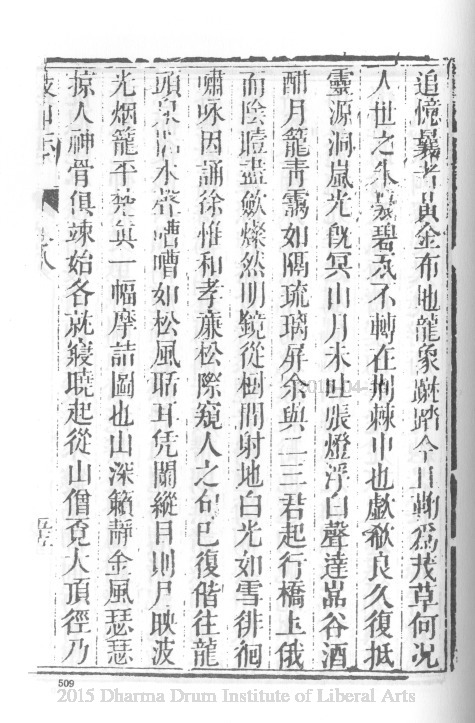 追憶曩者黃金布地龍象蹴踏今且鞠為茂草何況
人世之朱甍碧瓦不轉在荊棘中也歔欷良久復抵
靈源洞嵐光既冥山月未吐張燈浮白聲達嵓谷酒
酣月籠青靄如隔琉璃屏余與二三君起行橋上俄
而陰曀盡斂燦然明鏡從樹間射地白光如雪徘徊
嘯咏因誦徐惟和孝廉松際窺人之句已復偕往龍
頭泉水聲嘈嘈如松風聒耳凭闌縱目則月映波
光烟籠平楚眞一幅摩詰圖也山深籟靜金風瑟瑟
掠人神骨俱竦始各就寢曉起從山僧覓大頂徑乃
鼓山志 卷八 五三
509
2015 Dharma Drum Institute of Liberal Arts